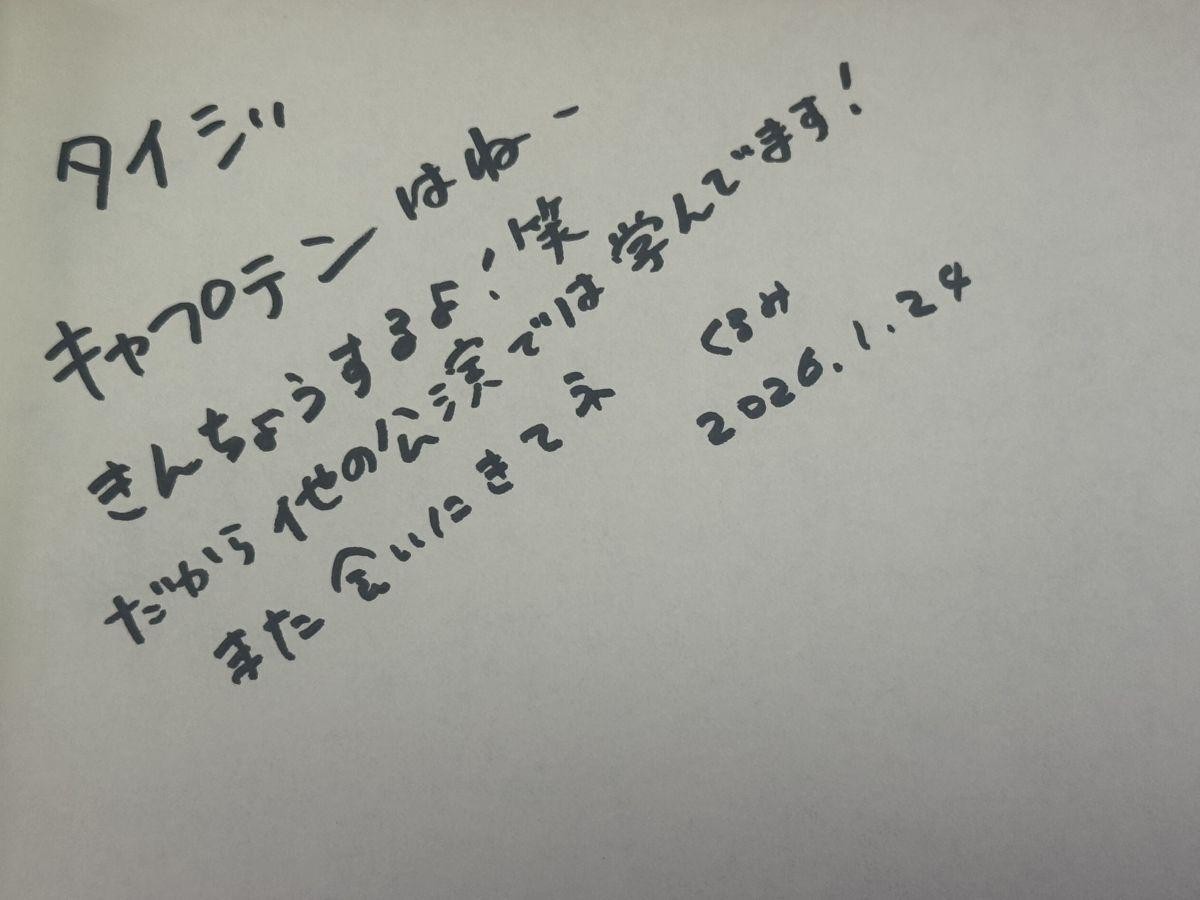 タイジ
キャプテンはねー
きんちょうするよ！笑
だから他の公演では学んでます！
また会いにきてネ
くるみ
2026.1.24